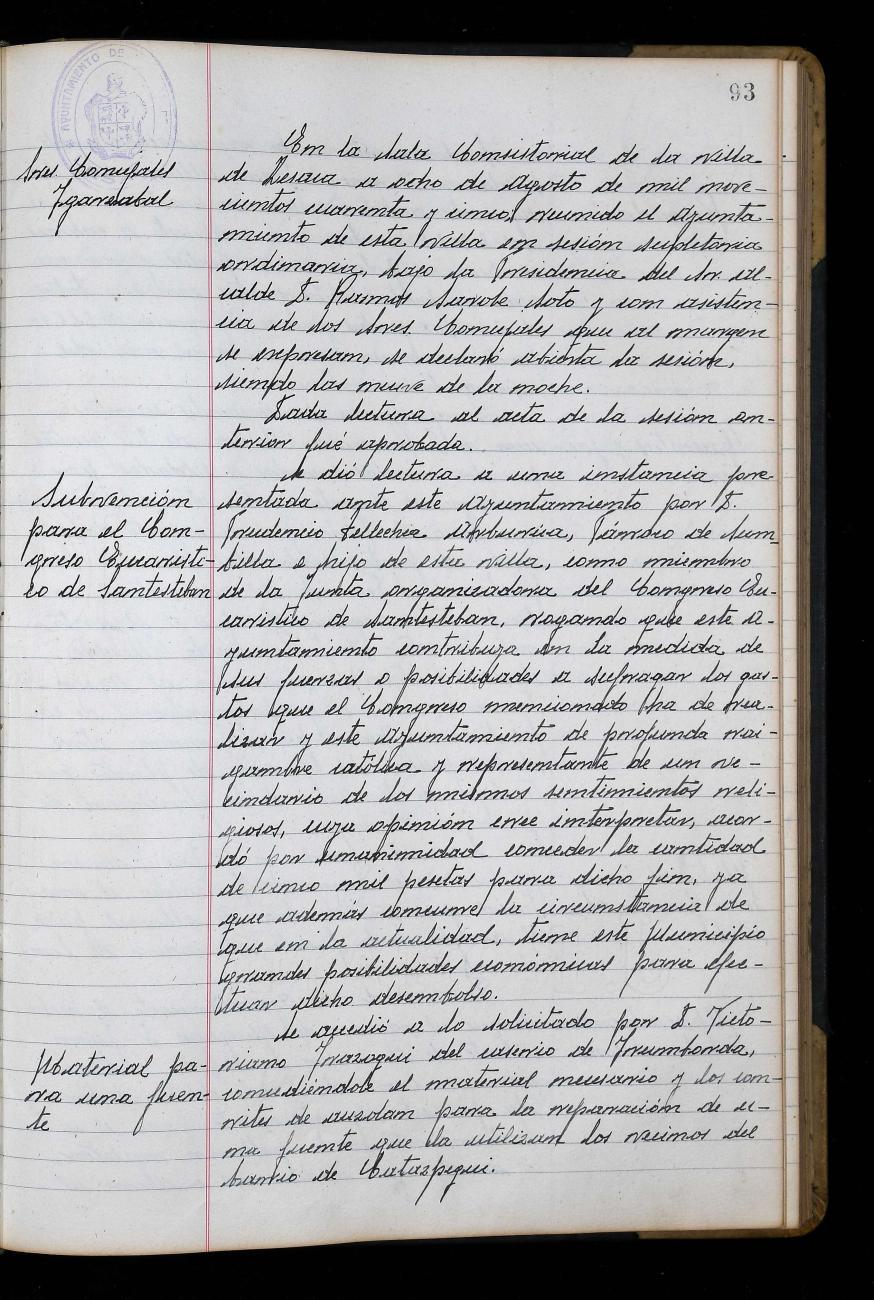 93
AYUNTAMIENTO DE
Sres. Concejales
Igarzabal
En la Sala Consistorial de la villa
de Lesaca a ocho de Agosto de mil nove-
cientos cuarenta y cinco, reunido el Ayunta-
miento de esta villa en sesión supletoria
ordinaria, bajo la Presidencia del Sr. Al-
calde D. Ramos Sarobe Soto y con asisten-
cia de los Sres. Concejales que al margen
se expresan, se declaró abierta la sesión,
siendo las nueve de la noche.
Dada lectura al acta de la sesión an-
terior fué aprobada.
Subvención
para el Con-
greso Eucarísti-
co de Santesteban
Se dió lectura a una instancia pre-
sentada ante este Ayuntamiento por D.
Prudencio Tellechea Arburua, Párroco de Sum-
billa e hijo de esta villa, como miembro
de la Junta organizadora del Congreso Eu-
carístico de Santesteban, rogando que este A-
yuntamiento contribuya en la medida de
sus fuerzas o posibilidades a sufragar los gas-
tos que el Congreso mencionado ha de rea-
lizar y este Ayuntamiento de profunda rai-
gambre católica y representante de un ve-
cindario de los mismos sentimientos reli-
giosos, cuya opinión cree interpretar, acor-
dó por unanimidad conceder la cantidad
de cinco mil pesetas para dicho fin, ya
que además concurre la circunstancia de
que en la actualidad, tiene este Municipio
grandes posibilidades económicas para efec-
tuar dicho desembolso.
Material pa-
ra una fuen-
te
Se accedió a lo solicitado por D. Victo-
riano Irazoqui del caserío de Irumborda,
concediéndole el material necesario y los con-
vites de auzolan para la reparación de u-
na fuente que la utilizan los vecinos del
barrio de Catazpegui.